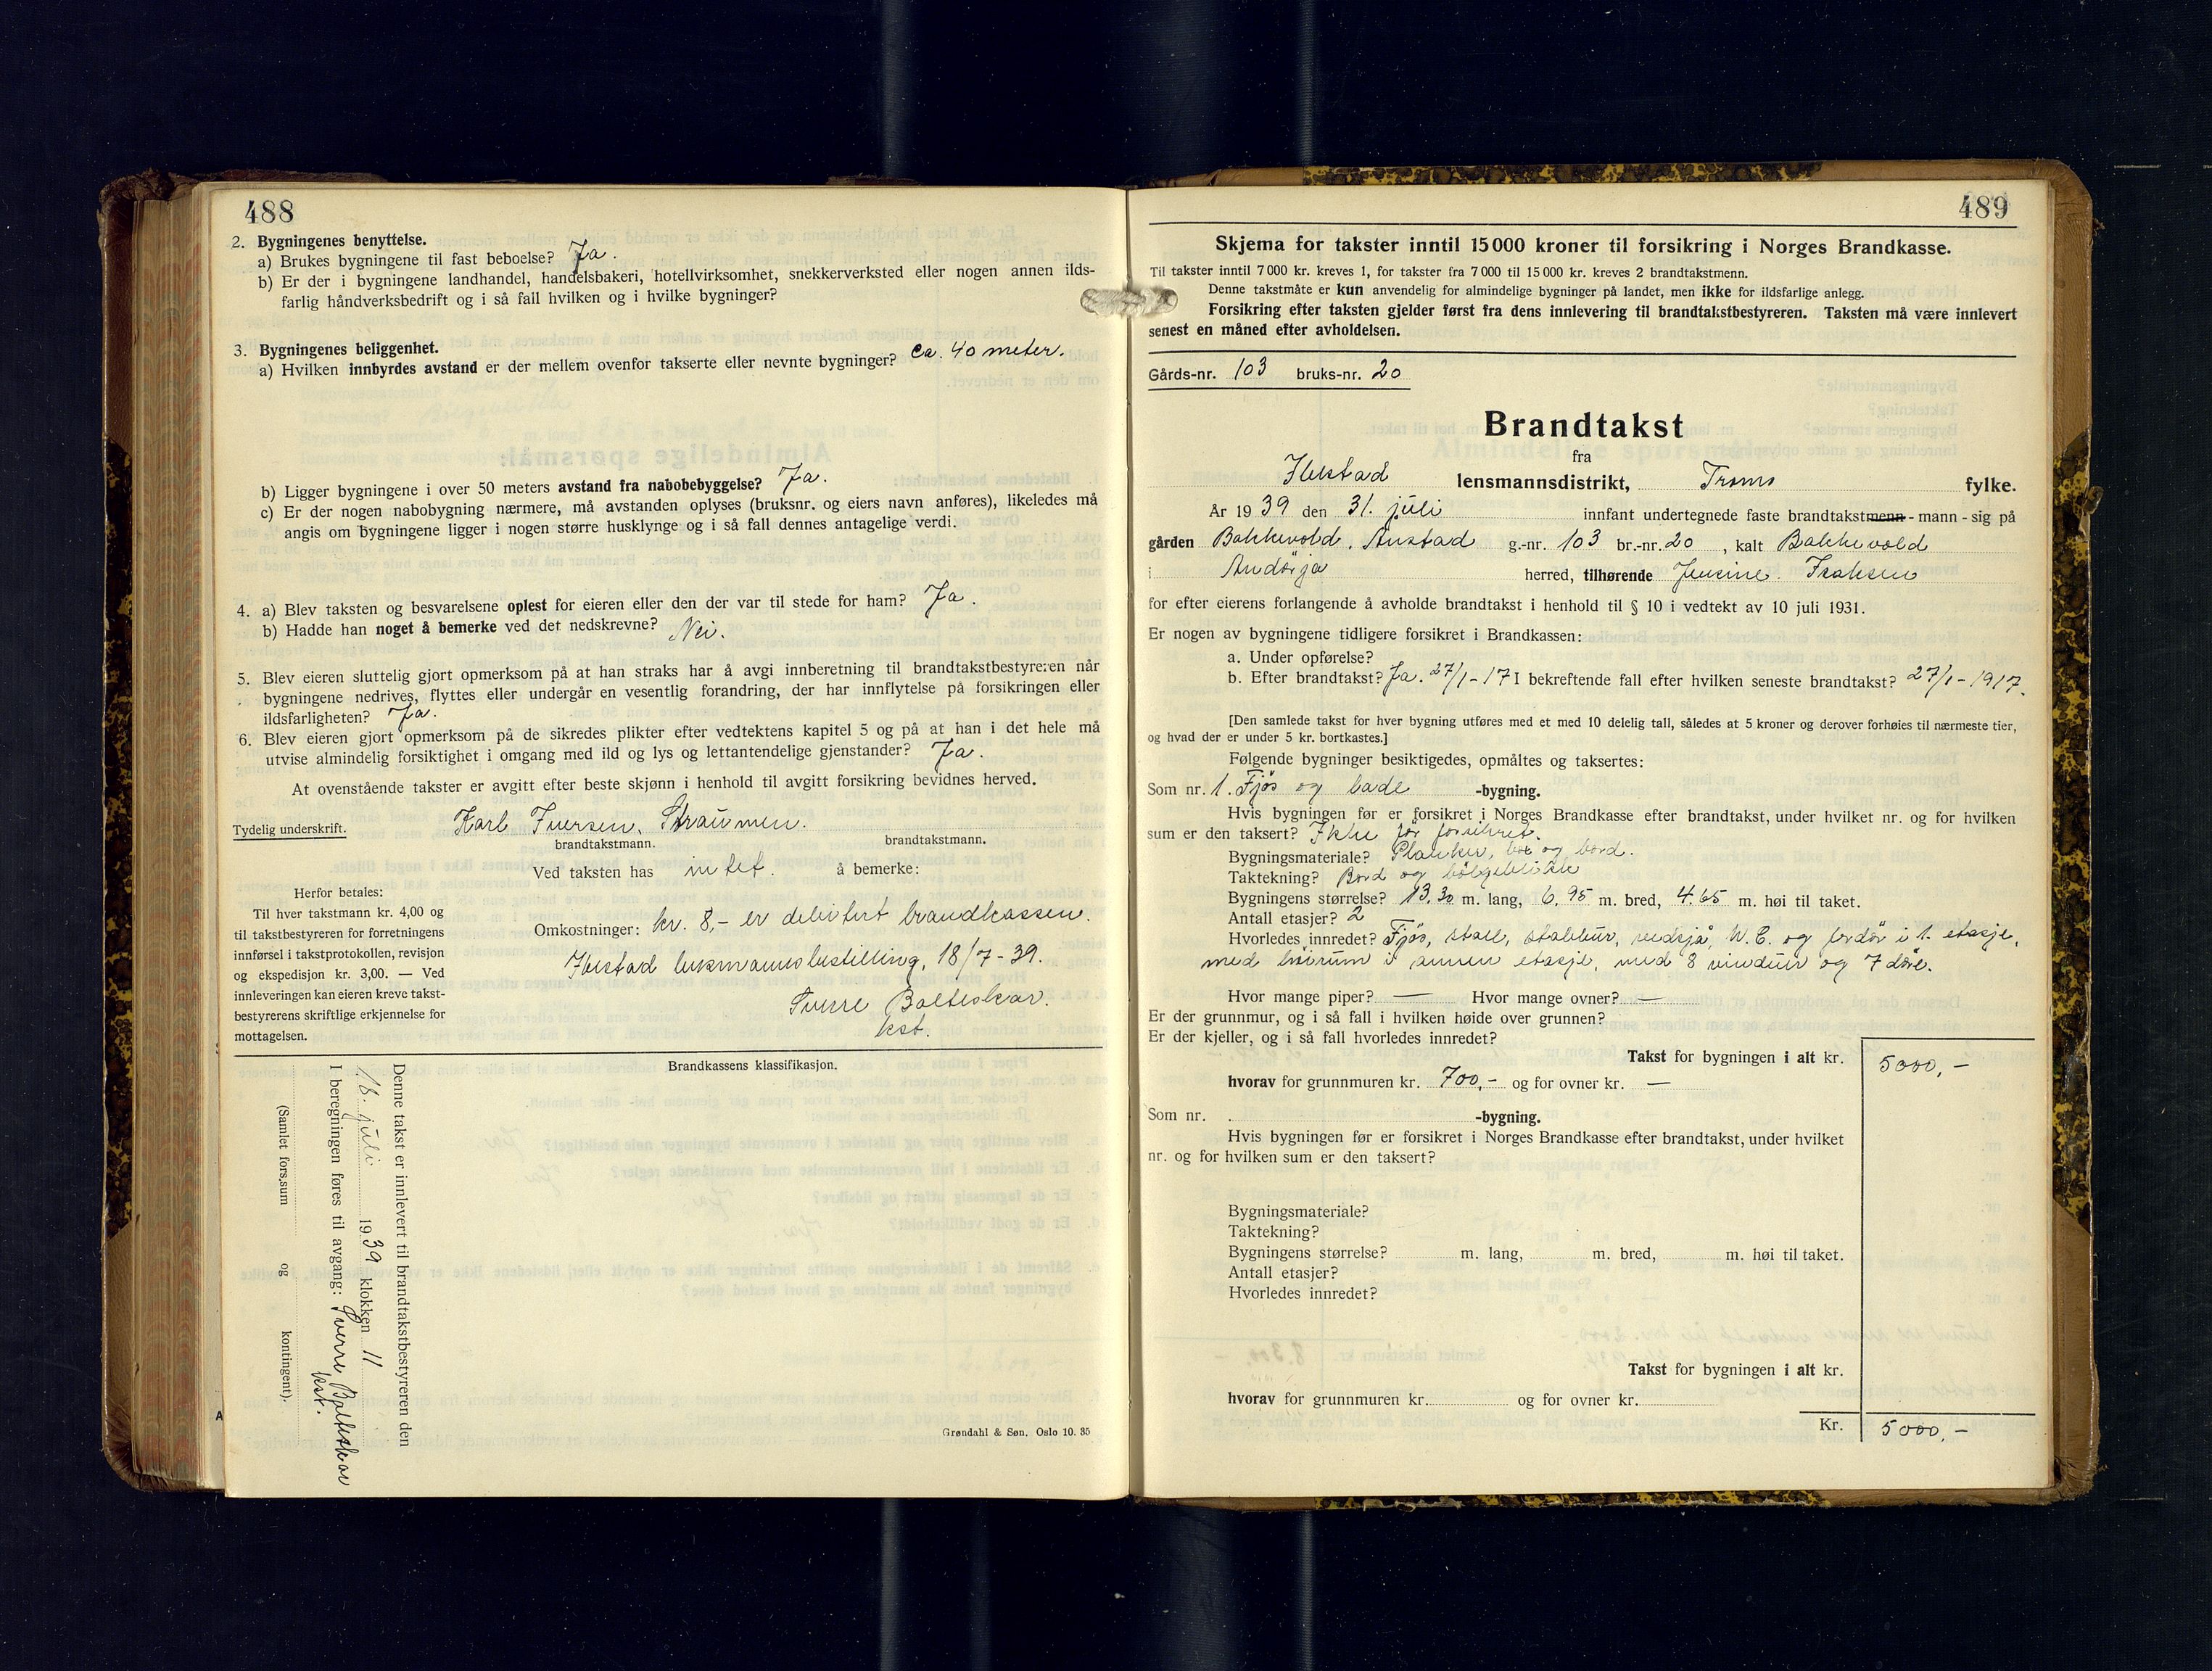 488
2. Bygningenes benyttelse.
a) Brukes bygningene til fast beboelse? Ja.
b) Er der i bygningene landhandel, handelsbakeri, hotellvirksomhet, snekkerverksted eller nogen annen ilds-
farlig håndverksbedrift og i så fall hvilken og i hvilke bygninger?
3. Bygningenes beliggenhet.
a) Hvilken innbyrdes avstand er der mellem ovenfor takserte eller nevnte bygninger? ca. 40 meter.
b) Ligger bygningene i over 50 meters avstand fra nabobebyggelse? Ja.
c) Er der nogen nabobygning nærmere, må avstanden oplyses (bruksnr. og eiers navn anføres), likeledes må
angis om bygningene ligger i nogen større husklynge og i så fall dennes antagelige verdi.
4. a) Blev taksten og besvarelsene oplest for eieren eller den der var til stede for ham? Ja.
b) Hadde han noget å bemerke ved det nedskrevne? Nei.
5. Blev eieren sluttelig gjort opmerksom på at han straks har å avgi innberetning til brandtakstbestyreren når
bygningene nedrives, flyttes eller undergår en vesentlig forandring, der har innflytelse på forsikringen eller
ildsfarligheten? Ja.
6. Blev eieren gjort opmerksom på de sikredes plikter efter vedtektens kapitel 5 og på at han i det hele må
utvise almindelig forsiktighet i omgang med ild og lys og lettantendelige gjenstander? Ja.
At ovenstående takster er avgitt efter beste skjønn i henhold til avgitt forsikring bevidnes herved.
Tydelig underskrift. Karl Iversen, Straumen.
brandtakstmann. brandtakstmann.
Ved taksten has intet. å bemerke:
Herfor betales:
Til hver takstmann kr. 4,00 og
til takstbestyreren for forretningens
innførsel i takstprotokollen, revisjon
og ekspedisjon kr. 3,00. — Ved
innleveringen kan eieren kreve takst-
bestyrerens skriftlige erkjennelse for
mottagelsen.
Omkostninger: kr. 8,- er debitert brandkassen.
Ibestad lensmannsbestilling, 18/7-39.
Sverre Balteskar.
kst.
Brandkassens klassifikasjon.
Denne takst er innlevert til brandtakstbestyreren den
18. juli 1939 klokken 11
I beregningen føres til avgang: Sverre Balteskar
kst.
(Samlet fors.sum og kontingent).
Grøndahl & Søn, Oslo 10. 35
489
Skjema for takster inntil 15 000 kroner til forsikring i Norges Brandkasse.
Til takster inntil 7 000 kr. kreves 1, for takster fra 7 000 til 15 000 kr. kreves 2 brandtakstmenn.
Denne takstmåte er kun anvendelig for almindelige bygninger på landet, men ikke for ildsfarlige anlegg.
Forsikring efter taksten gjelder først fra dens innlevering til brandtakstbestyreren. Taksten må være innlevert
senest en måned efter avholdelsen.
Gårds-nr. 103 bruks-nr. 20
Brandtakst
fra
Ibestad lensmannsdistrikt, Troms fylke.
År 1939 den 31. juli innfant undertegnede faste brandtakstmenn - mann - sig på
gården Bakkevold, Anstad g.-nr. 103 br.-nr. 20, kalt Bakkevold
i Andørja herred, tilhørende Jensine Isaksen
for efter eierens forlangende å avholde brandtakst i henhold til § 10 i vedtekt av 10 juli 1931.
Er nogen av bygningene tidligere forsikret i Brandkassen:
a. Under opførelse?
b. Efter brandtakst? Ja. 27/1-17 I bekreftende fall efter hvilken seneste brandtakst? 27/1-1917.
[Den samlede takst for hver bygning utføres med et med 10 delelig tall, således at 5 kroner og derover forhøies til nærmeste tier,
og hvad der er under 5 kr. bortkastes.]
Følgende bygninger besiktigedes, opmåltes og taksertes:
Som nr. 1. Fjøs og lade -bygning.
Hvis bygningen før er forsikret i Norges Brandkasse efter brandtakst, under hvilket nr. og for hvilken
sum er den taksert? Ikke før forsikret.
Bygningsmateriale? Planker, og bord.
Taktekning? Bord og bølgeblikk
Bygningens størrelse? 13,30 m. lang, 6,95 m. bred, 4,65 m. høi til taket.
Antall etasjer? 2
Hvorledes innredet? Fjøs, stall, stabbur, vedsjå, W.C. og fordør i 1. etasje,
med høirum i annen etasje, med 8 vinduer og 7 døre.
Hvor mange piper? — Hvor mange ovner? —
Er der grunnmur, og i så fall i hvilken høide over grunnen?
Er der kjeller, og i så fall hvorledes innredet?
Takst for bygningen i alt kr. 5000,-
hvorav for grunnmuren kr. 700,- og for ovner kr. —
Som nr. -bygning.
Hvis bygningen før er forsikret i Norges Brandkasse efter brandtakst, under hvilket
nr. og for hvilken sum er den taksert?
Bygningsmateriale?
Taktekning?
Bygningens størrelse? m. lang, m. bred, m. høi til taket.
Antall etasjer?
Hvorledes innredet?
Takst for bygningen i alt kr.
hvorav for grunnmuren kr. og for ovner kr.
Kr. 5000,-